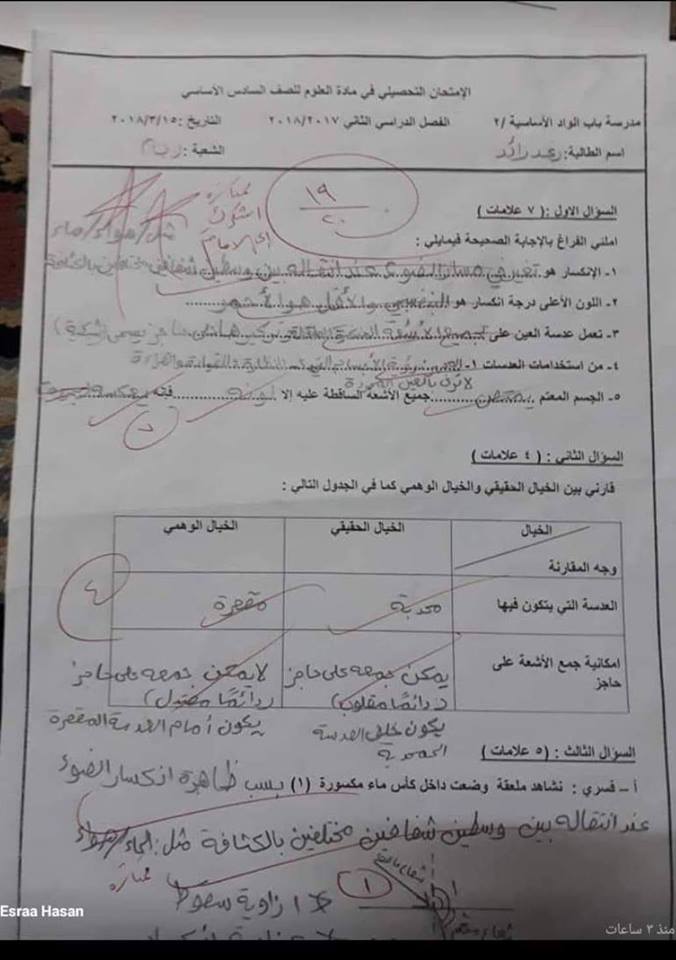 الإمتحان التحصيلي في مادة العلوم للصف السادس الأساسي
مدرسة باب الواد الأساسية /٢ الفصل الدراسي الثاني ٢٠١٨/٢٠١٧ التاريخ :٢٠١٨/٣/١٥
اسم الطالبة: رعد رائد الشعبة :ريام
ممتازة
١٩
٢٠
اشكرك
السؤال الاول :( ٧ علامات )
الى الامام
مثل/هواء/ماء
املئي الفراغ بالإجابة الصحيحة فيمايلي :
١- الإنكسار هو تغير في مسار الضوء عند انتقاله بين وسطين شفافين مختلفين بالكثافة
٢- اللون الأعلى درجة انكسار هو البنفسجي والأقل هو الأحمر
٣- تعمل عدسة العين على الأشعة
٤- من استخدامات العدسات ١- رؤية الأجسام النظارة القراءة
لا ترى بالعين المجردة
٥- الجسم المعتم يمتص جميع الأشعة الساقطة عليه إلا لونه فإنه يعكسه
٧
السؤال الثاني : ( ٤ علامات )
قارني بين الخيال الحقيقي والخيال الوهمي كما في الجدول التالي :
الخيال الخيال الحقيقي الخيال الوهمي
وجه المقارنة
العدسة التي يتكون فيها محدبة مقعرة
٤
امكانية جمع الأشعة على حاجز يمكن جمعه على حاجز لا يمكن جمعه على حاجز
(دائمًا مقلوب) (دائمًا معتدل)
يكون خلف العدسة المحدبة يكون أمام العدسة المقعرة
السؤال الثالث : ( ٥ علامات )
أ – فسري : نشاهد ملعقة وضعت داخل كأس ماء مكسورة (١) بسبب ظاهرة انكسار الضوء
عند انتقاله بين وسطين شفافين مختلفين بالكثافة مثل: الماء/هواء
ممتازة
١
شعاع ساقط
١ زاوية سقوط
Esraa Hasan
منذ ٣ ساعات